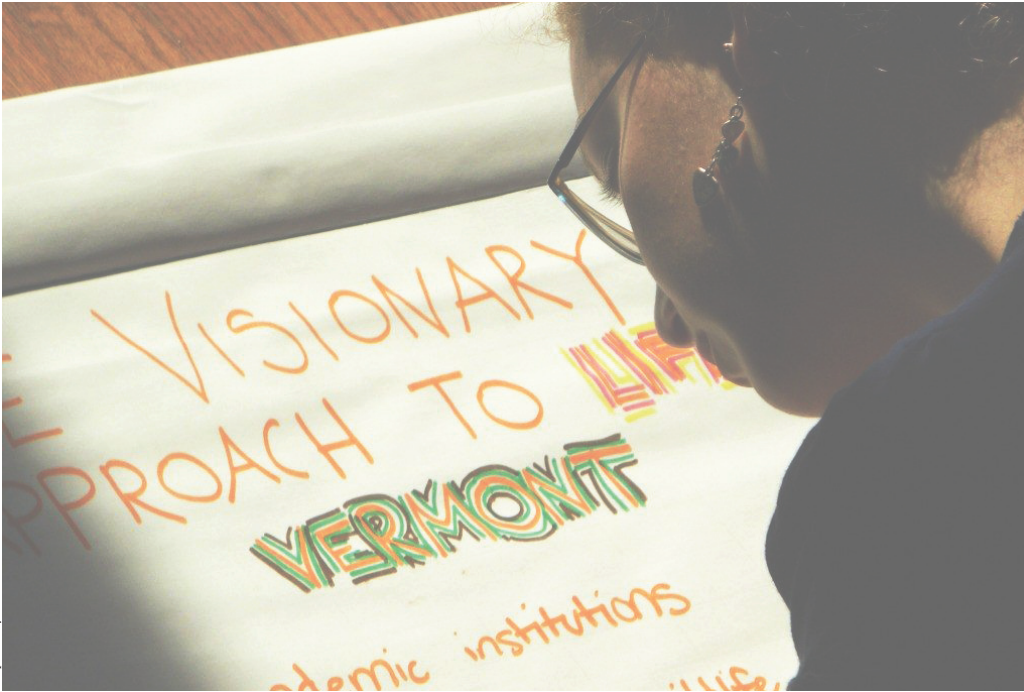 E VISIONARY
APPROACH TO LIF
VERMONT
demic institutions